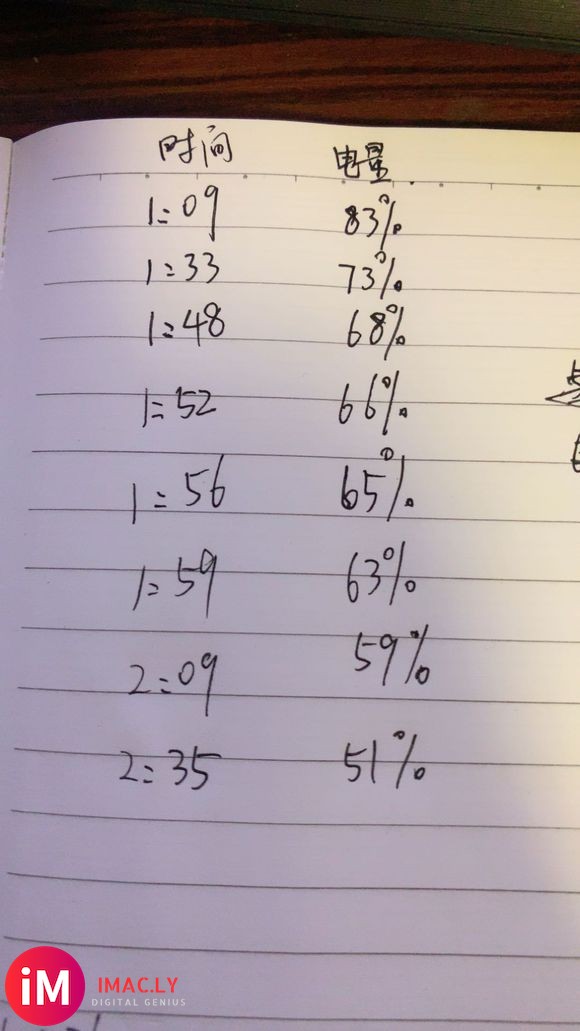 时间 电量
1:09 83%
1:33 73%
1:48 68%
1:52 66%
1:56 65%
1:59 63%
2:09 59%
2:35 51%
iM IMAC.LY
DIGITAL GENIUS